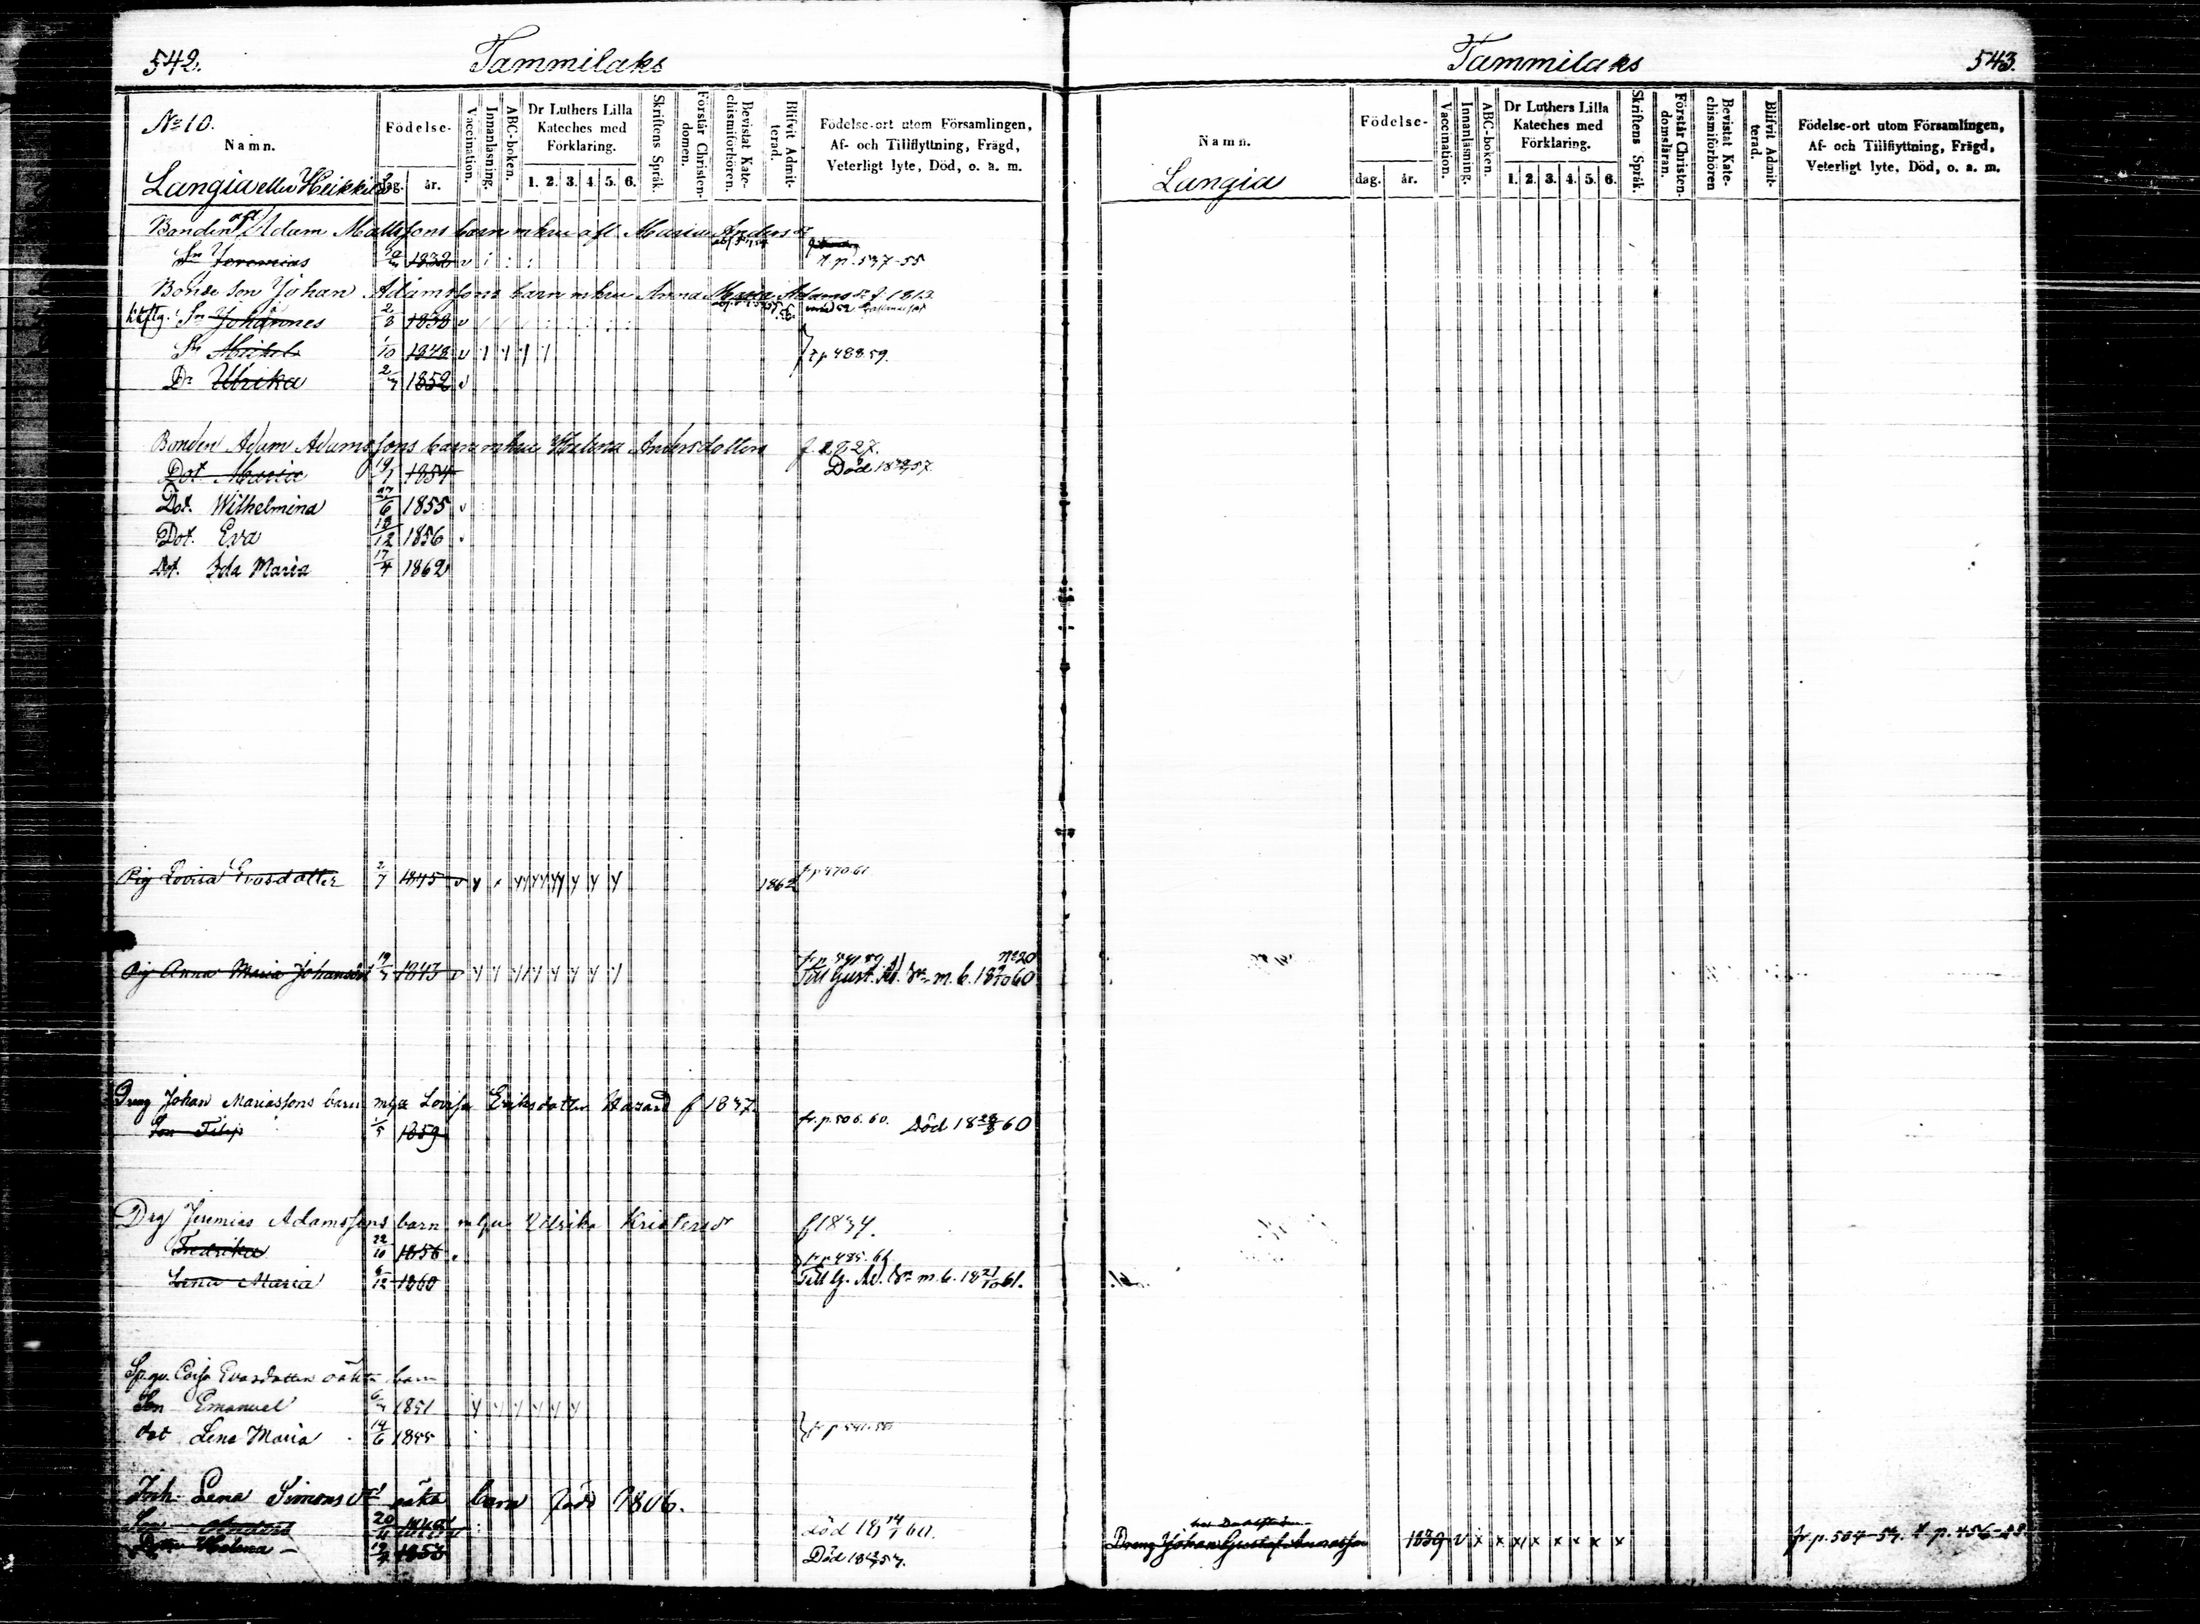 542.
Tammilaks
No 10.
Namn.
Födelse-
dag. år.
Vaccination.
Innanläsning.
ABC-boken.
Dr Luthers Lilla Kateches med Förklaring.
1. 2. 3. 4. 5. 6.
Skriftens Språk.
Förstår Christendomen.
Bevistat Katechismiförhören.
Blifvit Admitterad.
Födelse-ort utom Församlingen, Af- och Tillflyttning, Frägd, Veterligt lyte, Död, o. a. m.
Langia eller Heikkilä
Bonden afl Adam Mattssons barn m hu afl. Maria Anders dr
Sn Jeremias 1832 v
t. p. 537-55
Bonde Son Johan Adamssons barn m hu Anna Maria Adamsdr f 1813.
Sn Johannes 2/3 1838 v
Sn Michel 1/10 1848 v
t p 488.59.
Dr Ulrika 2/7 1852 v
Bonden Adam Adamssons barn m hu Helena Andersdotters f. 1827.
Dot Maria 19/1 1854 Död
Dot. Wilhelmina 27/6 1855 v
Dot. Eva 18/12 1856
Dot. Ida Maria 17/4 1862
Pig Lovisa Evasdotter 2/7 1845 v 1862
fr p 470.61
Pig Anna Maria Johansdr 1843 v
No 20
Till Gust. Ad. Sn m. b. 18 60
Dreng Johan Mariassons barn m hu Lovisa Eriksdotter Hasard f 1837.
Son Filip 1/5 1859 fr. p. 506. 60. Död 18 60
Drg Jeremias Adamssons barn m hu Ulrika Kristersdr f 1834.
Fredrika 22/10 1856
fr p 485. 61
Lena Maria 6/12 1860 Till G. Ad. Sn m. b. 18 61.
Caisa Evasdotter oäkta barn
Son Emanuel 1851
dot Lena Maria 14/6 1855
Inh. Lena Simonsdr oäkta barn född 1806.
Son Anders 20 Död 18 14/1 60.
Dotter Helena 1853 Död 18 57.
Tammilaks
543.
Namn.
Födelse-
dag. år.
Vaccination.
Innanläsning.
ABC-boken.
Dr Luthers Lilla Kateches med Förklaring.
1. 2. 3. 4. 5. 6.
Skriftens Språk.
Förstår Christendomsläran.
Bevistat Katechismiförhören
Blifvit Admitterad.
Födelse-ort utom Församlingen, Af- och Tillflyttning, Frägd, Veterligt lyte, Död, o. a. m.
Langia
Dreng Johan Gustaf Annasson 1839 v x x x x x x x x fr. p. 504-57. t. p. 456-58